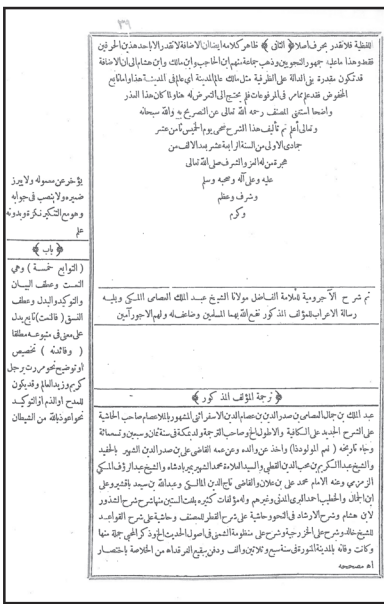 ٣٩
اللفظية فلا تقدر بحرف أصلا ﴿ الثانى ﴾ ظاهر كلامه ايضا ان الاضافة لا تقدر الا باحد هذين الحرفين
فقط وهذا ما عليه جمهور النحويين وذهب جماعة منهم ابن الحاجب وابن مالك وابن هشام الى أن الاضافة
قد تكون مقدرة بفى الدالة على الظرفية مثل مالك عالم المدينة أى عالم فى المدينة هذا واما تابع
المخفوض فقد علم مما مر فى المرفوعات فلم يحتج الى التعرض له هنا ولما كان هذا العذر
واضحا استغنى المصنف رحمه الله تعالى عن التصريح به والله سبحانه
وتعالى أعلم تم تأليف هذا الشرح ضحى يوم الخميس ثامن عشر
جمادى الاولى من السنة الرابعة عشر بعد الالف من
هجرة من له العز والشرف صلى الله تعالى
عليه وعلى آله وصحبه وسلم
وشرف وعظم
وكرم
تم شرح الآجرومية للعلامة الفاضل مولانا الشيخ عبد الملك العصامى المكى ويليه
رسالة الاعراب للمؤلف المذكور نفع الله بهما المسلمين وضاعف له ولهم الاجور آمين
﴿ ترجمة المؤلف المذكور ﴾
عبد الملك بن جمال العصامى بن صدر الدين بن عصام الدين الاسفرائنى المشهور بالملا عصام صاحب الحاشية
على الشرح الجديد على الكافية والاطول الخ وصاحب الترجمة ولد بمكة فى سنة ثمان وسبعين وتسعمائة
وجاء تاريخه ( نعم المولود ذا) واخذ عن والده وعن عمه القاضى على بن صدر الدين الشهير بالحفيد
والشيخ عبد الكريم بن محب الدين القطبى والسيد العلامة محمد الشهير بمير بادشاه والشيخ عبد الرؤف المكى
وعنه الامام محمد على بن علان والقاضى تاج الدين المالكى وعبد الله بن سعيد باقشير وعلى
ابن الجمال والخطيب احمد البرى المدنى وغيرهم وله مؤلفات كثيرة بلغت الستين منها شرح شرح الشذور
لابن هشام وشرح الارشاد فى النحو وحاشية على شرح القطر للمصنف وحاشية على شرح القواعد
للشيخ خالد وشرح على الخزرجية وشرح على منظومة الشمنى فى اصول الحديث الخ وذكر المحبى جملة منها
وكانت وفاته بالمدينة المنورة فى سنة سبع وثلاثين والف ودفن ببقيع الغرقد اه من الخلاصة باختصار
اه مصححه
يؤخر عن معموله ولا يبرز
ضميره ولا ينصب فى جوابه
وهو مع التنكير نكرة وبدونه
علم
﴿ باب ﴾
( التوابع خمسة ) وهى
النعت وعطف البيان
والتوكيد والبدل وعطف
النسق ( فالنعت) تابع يدل
على معنى فى متبوعه مطلقا
( وفائدته ) تخصيص
او توضيح نحو مررت برجل
كريم وزيد العالم وقد يكون
للمدح او الذم او التوكيد
نحو اعوذ بالله من الشيطان